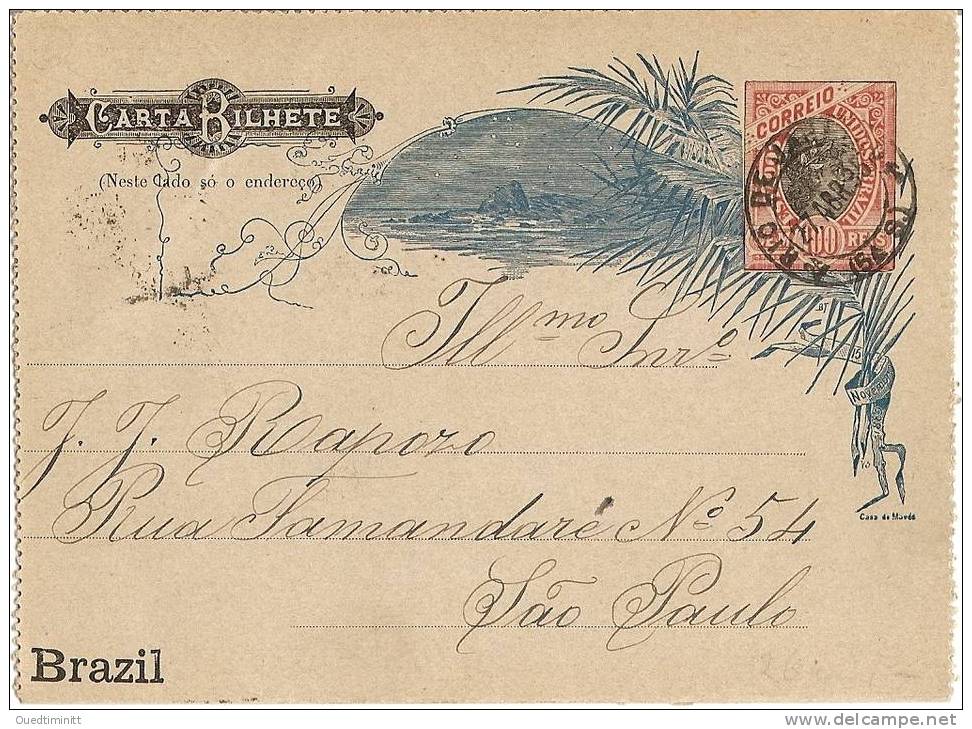 CARTA BILHETE
(Neste lado só o endereço)
CORREIO
100 REIS
RIO DE
Illmo Snrº
J. J. Rapozo
Rua Tamandaré Nº 54
São Paulo
15
Novembro
Casa da Moeda
Brazil
Ouedtiminitt
www.delcampe.net